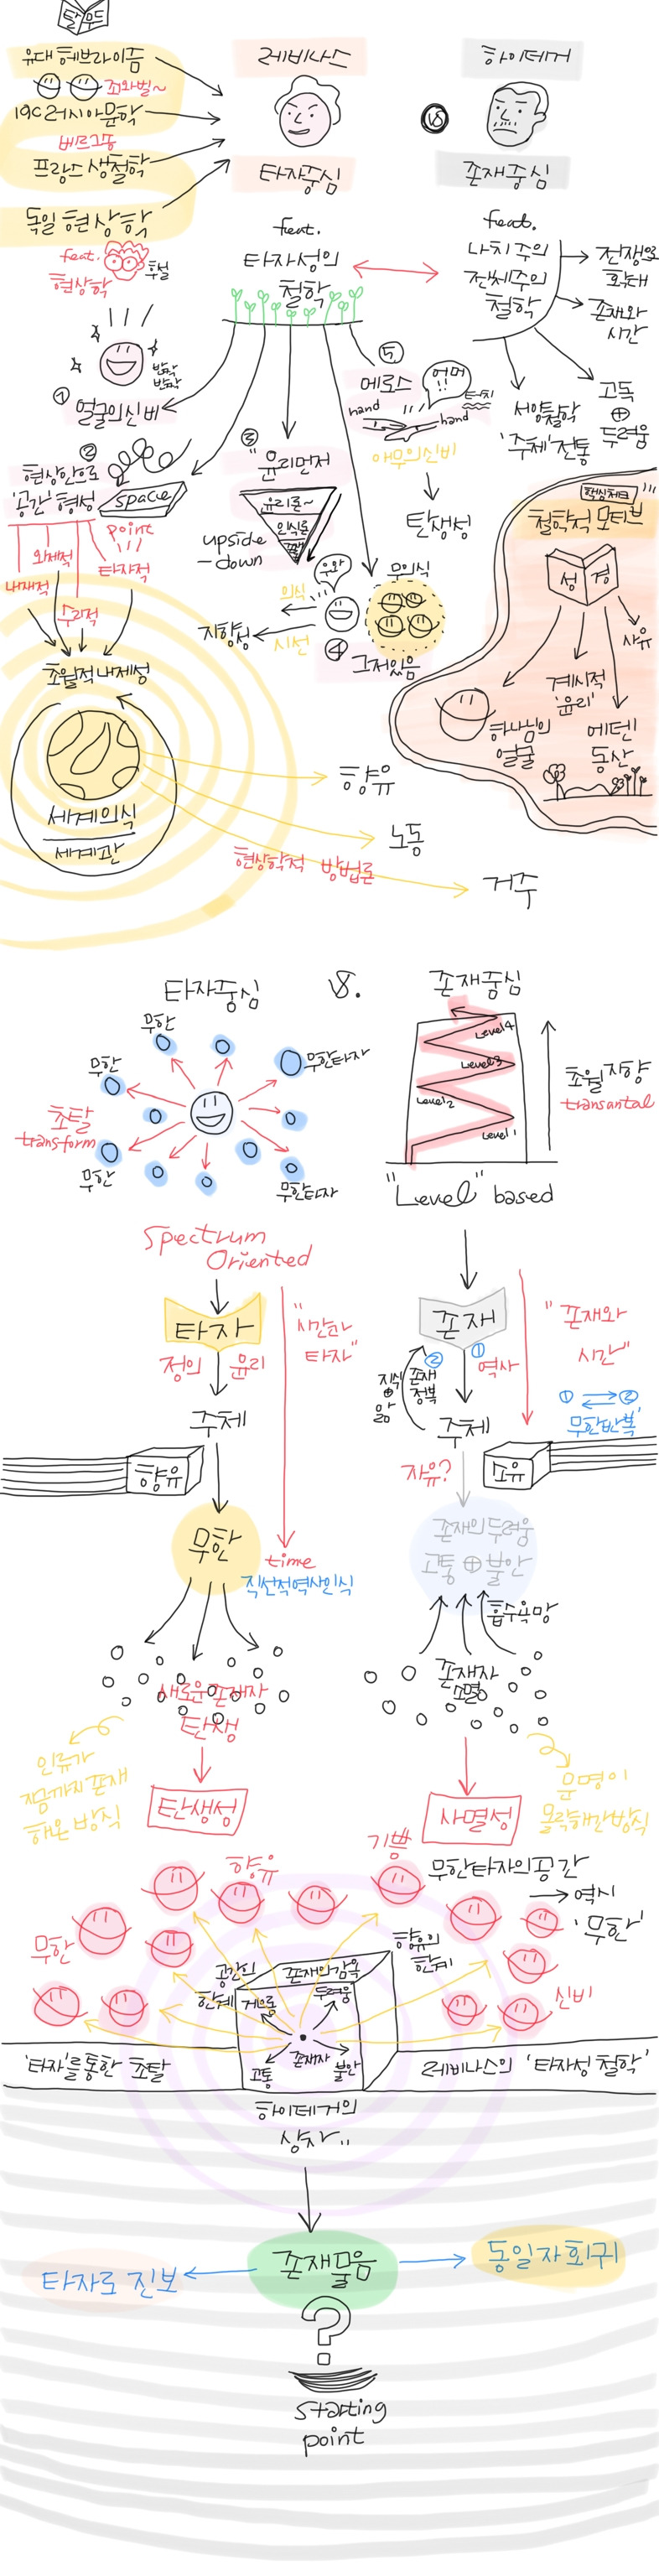 탈무드
유대 헤브라이즘
죄와벌~
19C 러시아문학
베르그송
프랑스 생철학
독일 현상학
feat.
현상학
후설
레비나스
타자중심
VS
하이데거
존재중심
feat.
타자성의
철학
feat.
나치주의
전체주의
철학
전쟁의
확대
존재와
시간
고독
⊕
두려움
서양철학
'주체' 전통
반짝
반짝
① 얼굴의신비
②
현상안으로
'공간' 형성
space
point
내재적
외재적
수리적
타자적
초월적내재성
③
"윤리먼저
윤리론~
인식론
upside
-down
⑤
에로스
어머
!!
터치
hand
hand
애무의신비
탄생성
우와
의식
지향성
시선
④
무의식
그저있음
핵심체크
철학적 모티브
성경
사유
계시적
'윤리'
하나님의
얼굴
에덴
동산
세계의식
세계관
향유
노동
현상학적 방법론
거주
타자중심
VS.
존재중심
무한
무한
무한타자
초탈
transform
무한
무한타자
Level 4
Level 3
Level 2
Level 1
초월지향
transantal
"Level" based
Spectrum
Oriented
타자
정의 윤리
주체
"시간과
타자"
향유
무한
time
직선적역사인식
존재
①
역사
②
존재
정복
지식
⊕
앎
주체
"존재와
시간"
① ⇄ ②
무한반복
자유?
소유
존재의두려움
고통 ⊕ 불안
흡수욕망
새로운존재자
탄생
존재자
소멸
인류가
지금까지 존재
해온 방식
탄생성
사멸성
문명이
몰락해간방식
향유
기쁨
무한타자의공간
역시
'무한'
무한
신비
공간의
한계
존재의감옥
향유의
한계
게으름
두려움
존재자
고독
불안
'타자'를통한 초탈
레비나스의 '타자성 철학'
하이데거의
상자"
존재물음
타자로 진보
동일자회귀
?
starting
point